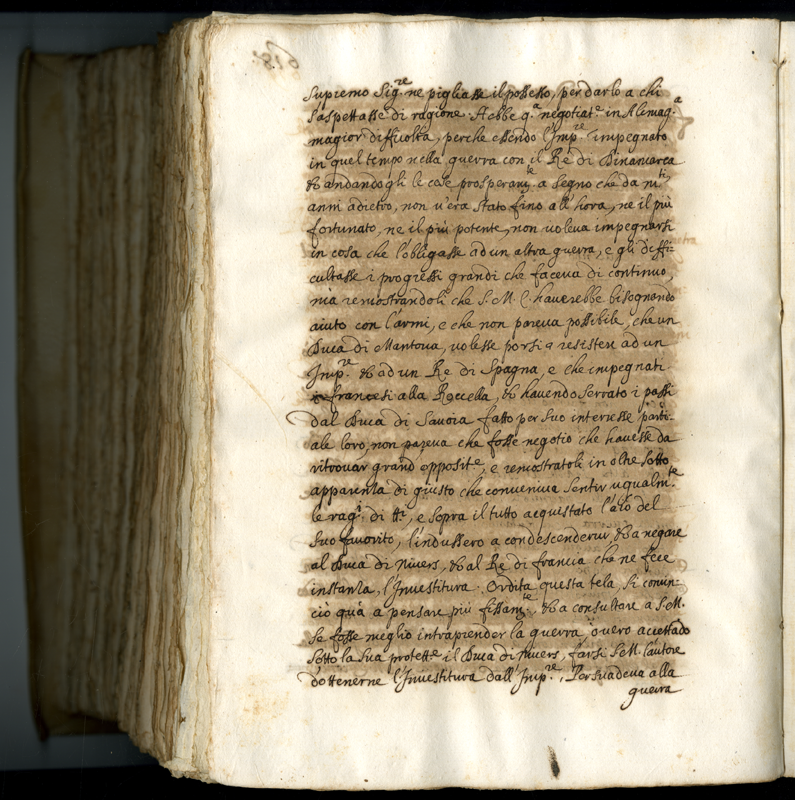 supremo Sig.re ne pigliasse il possesso, per darlo a chi
s'aspettasse di ragione. Hebbe q.a negotiat.e in Alemag.a
maggior difficoltà, perche essendo l'Imp.re impegnato
in quel tempo nella guerra con il Rè di Danimarca
& andandogli le cose prosperam.te a segno che da m.ti
anni adietro, non v'era stato fino all'hora, ne il più
fortunato, ne il più potente, non voleva impegnarsi
in cosa che l'obligasse ad un altra guerra, e gli diffi-
cultasse i progressi grandi che faceva di continuo,
mà remostrandoli che S.M.C. haverebbe bisognando
aiuto con l'armi, e che non pareva possibile, che un
Duca di Mantova, volesse porsi a resister ad un
Imp.re & ad un Re di Spagna, e che impegnati
francesi alla Roccella, & havendo serrato i passi
dal Duca di Savoia fatto per suo interesse parti-
ale loro, non pareva che fosse negotio che havesse da
ritrovar grand opposit.e, e remostratoli in oltre sotto
apparenza di giusto che conveniva sentir ugualm.te
le rag.i di tt.i, e sopra il tutto acquestato l'aīo del
suo favorito, l'indussero a condescenderui, & a negare
al Duca di Nivers, & al Rè di francia che ne fece
instanza, l'Investitura. Ordita questa tela, si comin-
ciò quà a pensare più fissam.te, & a consultare a S.M.
se fosse meglio intraprender la guerra, overo accettado
sotto la sua protett.e il Duca di Nivers, farsi S.M. l'autore
d'ottenerne l'Investitura dall'Imp.re, Persuadeva alla
guerra